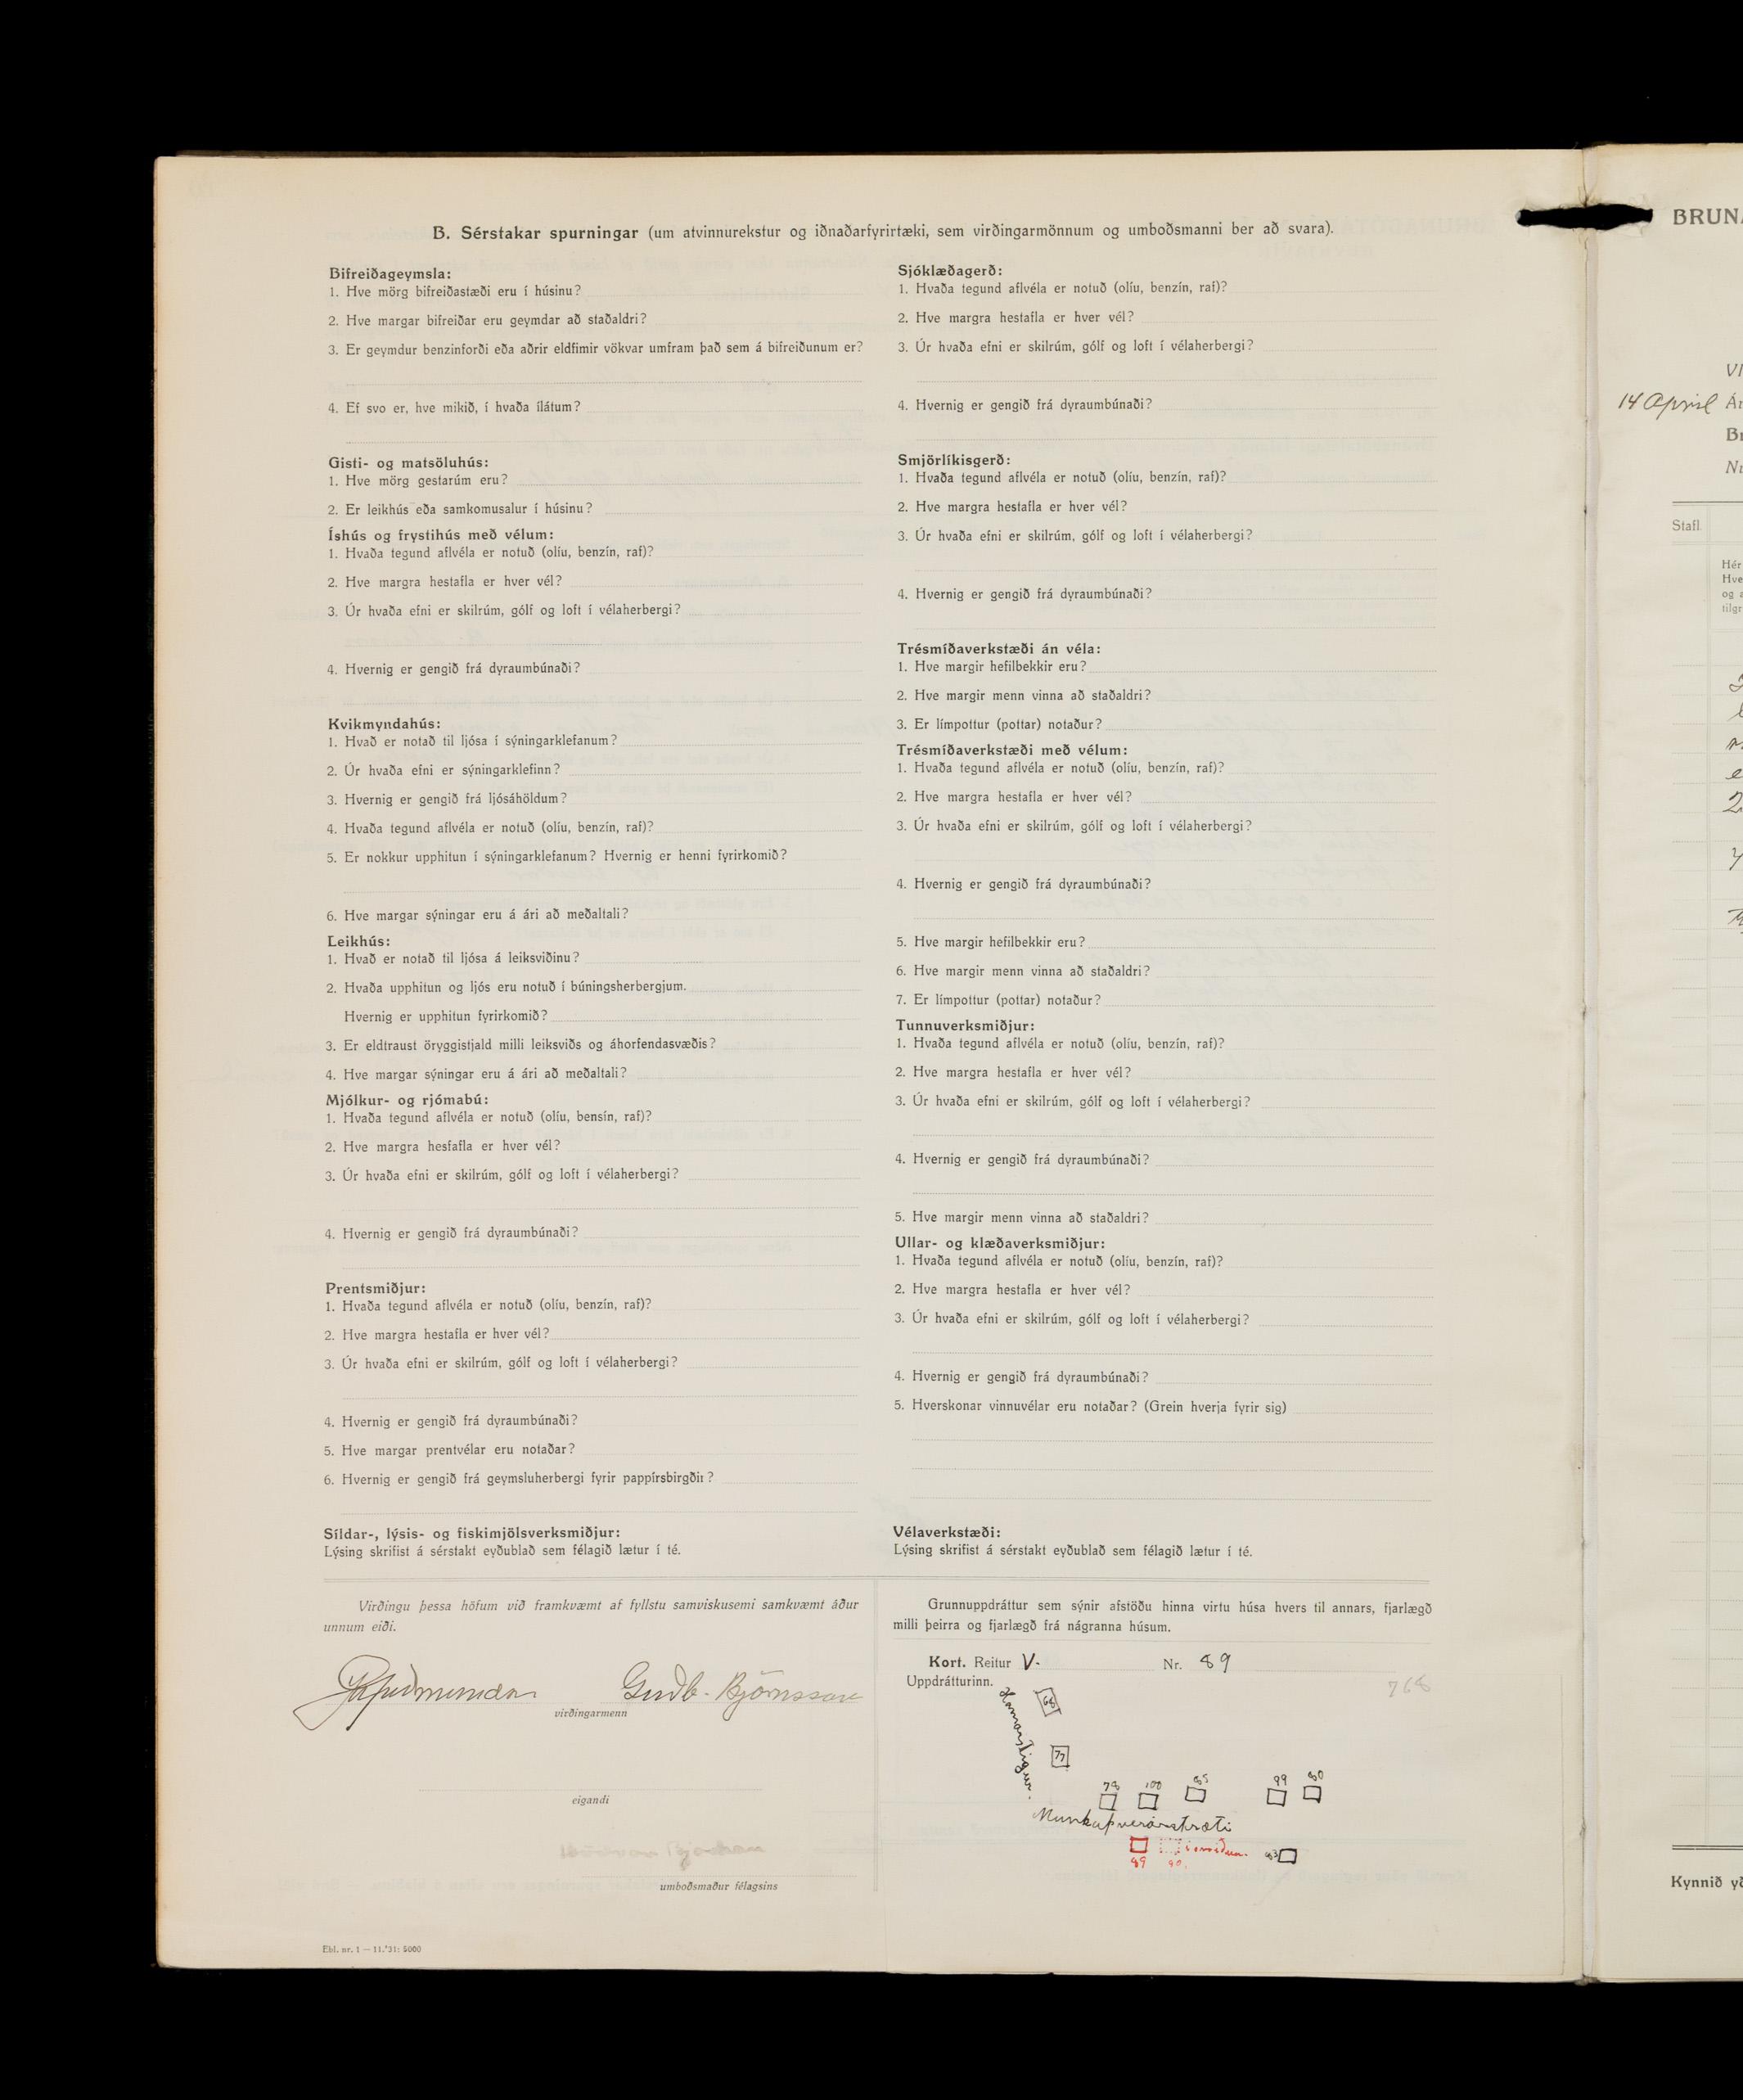 B. Sérstakar spurningar (um atvinnurekstur og iðnaðarfyrirtæki, sem virðingarmönnum og umboðsmanni ber að svara).
Bifreiðageymsla:
1. Hve mörg bifreiðastæði eru í húsinu?
2. Hve margar bifreiðar eru geymdar að staðaldri?
3. Er geymdur benzinforði eða aðrir eldfimir vökvar umfram það sem á bifreiðunum er?
4. Ef svo er, hve mikið, í hvaða ílátum?
Gisti- og matsöluhús:
1. Hve mörg gestarúm eru?
2. Er leikhús eða samkomusalur í húsinu?
Íshús og frystihús með vélum:
1. Hvaða tegund aflvéla er notuð (olíu, benzín, raf)?
2. Hve margra hestafla er hver vél?
3. Úr hvaða efni er skilrúm, gólf og loft í vélaherbergi?
4. Hvernig er gengið frá dyraumbúnaði?
Kvikmyndahús:
1. Hvað er notað til ljósa í sýningarklefanum?
2. Úr hvaða efni er sýningarklefinn?
3. Hvernig er gengið frá ljósáhöldum?
4. Hvaða tegund aflvéla er notuð (olíu, benzín, raf)?
5. Er nokkur upphitun í sýningarklefanum? Hvernig er henni fyrirkomið?
6. Hve margar sýningar eru á ári að meðaltali?
Leikhús:
1. Hvað er notað til ljósa á leiksviðinu?
2. Hvaða upphitun og ljós eru notuð í búningsherbergjum.
Hvernig er upphitun fyrirkomið?
3. Er eldtraust öryggistjald milli leiksviðs og áhorfendasvæðis?
4. Hve margar sýningar eru á ári að meðaltali?
Mjólkur- og rjómabú:
1. Hvaða tegund aflvéla er notuð (olíu, bensín, raf)?
2. Hve margra hesfafla er hver vél?
3. Úr hvaða efni er skilrúm, gólf og loft í vélaherbergi?
4. Hvernig er gengið frá dyraumbúnaði?
Prentsmiðjur:
1. Hvaða tegund aflvéla er notuð (olíu, benzín, raf)?
2. Hve margra hestafla er hver vél?
3. Úr hvaða efni er skilrúm, gólf og loft í vélaherbergi?
4. Hvernig er gengið frá dyraumbúnaði?
5. Hve margar prentvélar eru notaðar?
6. Hvernig er gengið frá geymsluherbergi fyrir pappírsbirgðir?
Síldar-, lýsis- og fiskimjölsverksmiðjur:
Lýsing skrifist á sérstakt eyðublað sem félagið lætur í té.
Sjóklæðagerð:
1. Hvaða tegund aflvéla er notuð (olíu, benzín, raf)?
2. Hve margra hestafla er hver vél?
3. Úr hvaða efni er skilrúm, gólf og loft í vélaherbergi?
4. Hvernig er gengið frá dyraumbúnaði?
Smjörlíkisgerð:
1. Hvaða tegund aflvéla er notuð (olíu, benzín, raf)?
2. Hve margra hestafla er hver vél?
3. Úr hvaða efni er skilrúm, gólf og loft í vélaherbergi?
4. Hvernig er gengið frá dyraumbúnaði?
Trésmíðaverkstæði án véla:
1. Hve margir hefilbekkir eru?
2. Hve margir menn vinna að staðaldri?
3. Er límpottur (pottar) notaður?
Trésmíðaverkstæði með vélum:
1. Hvaða tegund aflvéla er notuð (olíu, benzín, raf)?
2. Hve margra hestafla er hver vél?
3. Úr hvaða efni er skilrúm, gólf og loft í vélaherbergi?
4. Hvernig er gengið frá dyraumbúnaði?
5. Hve margir hefilbekkir eru?
6. Hve margir menn vinna að staðaldri?
7. Er límpottur (pottar) notaður?
Tunnuverksmiðjur:
1. Hvaða tegund aflvéla er notuð (olíu, benzín, raf)?
2. Hve margra hestafla er hver vél?
3. Úr hvaða efni er skilrúm, gólf og loft í vélaherbergi?
4. Hvernig er gengið frá dyraumbúnaði?
5. Hve margir menn vinna að staðaldri?
Ullar- og klæðaverksmiðjur:
1. Hvaða tegund aflvéla er notuð (olíu, benzín, raf)?
2. Hve margra hestafla er hver vél?
3. Úr hvaða efni er skilrúm, gólf og loft í vélaherbergi?
4. Hvernig er gengið frá dyraumbúnaði?
5. Hverskonar vinnuvélar eru notaðar? (Grein hverja fyrir sig)
Vélaverkstæði:
Lýsing skrifist á sérstakt eyðublað sem félagið lætur í té.
Virðingu þessa höfum við framkvæmt af fyllstu samviskusemi samkvæmt áður
unnum eiði.
Guðb. Björnsson
virðingarmenn
eigandi
umboðsmaður félagsins
Ebl. nr. 1 — 11.'31: 5000
Grunnuppdráttur sem sýnir afstöðu hinna virtu húsa hvers til annars, fjarlægð
milli þeirra og fjarlægð frá nágranna húsum.
Kort. Reitur V. Nr. 89
Uppdrátturinn.
768
Hamarstígur.
68
77
78 100 85 99 80
Munkaþverárstræti
í smíðum.
89 90. 83
BRUNA
14 April
Stafl.
Hér
Hve
og a
tilgr
Kynnið yð